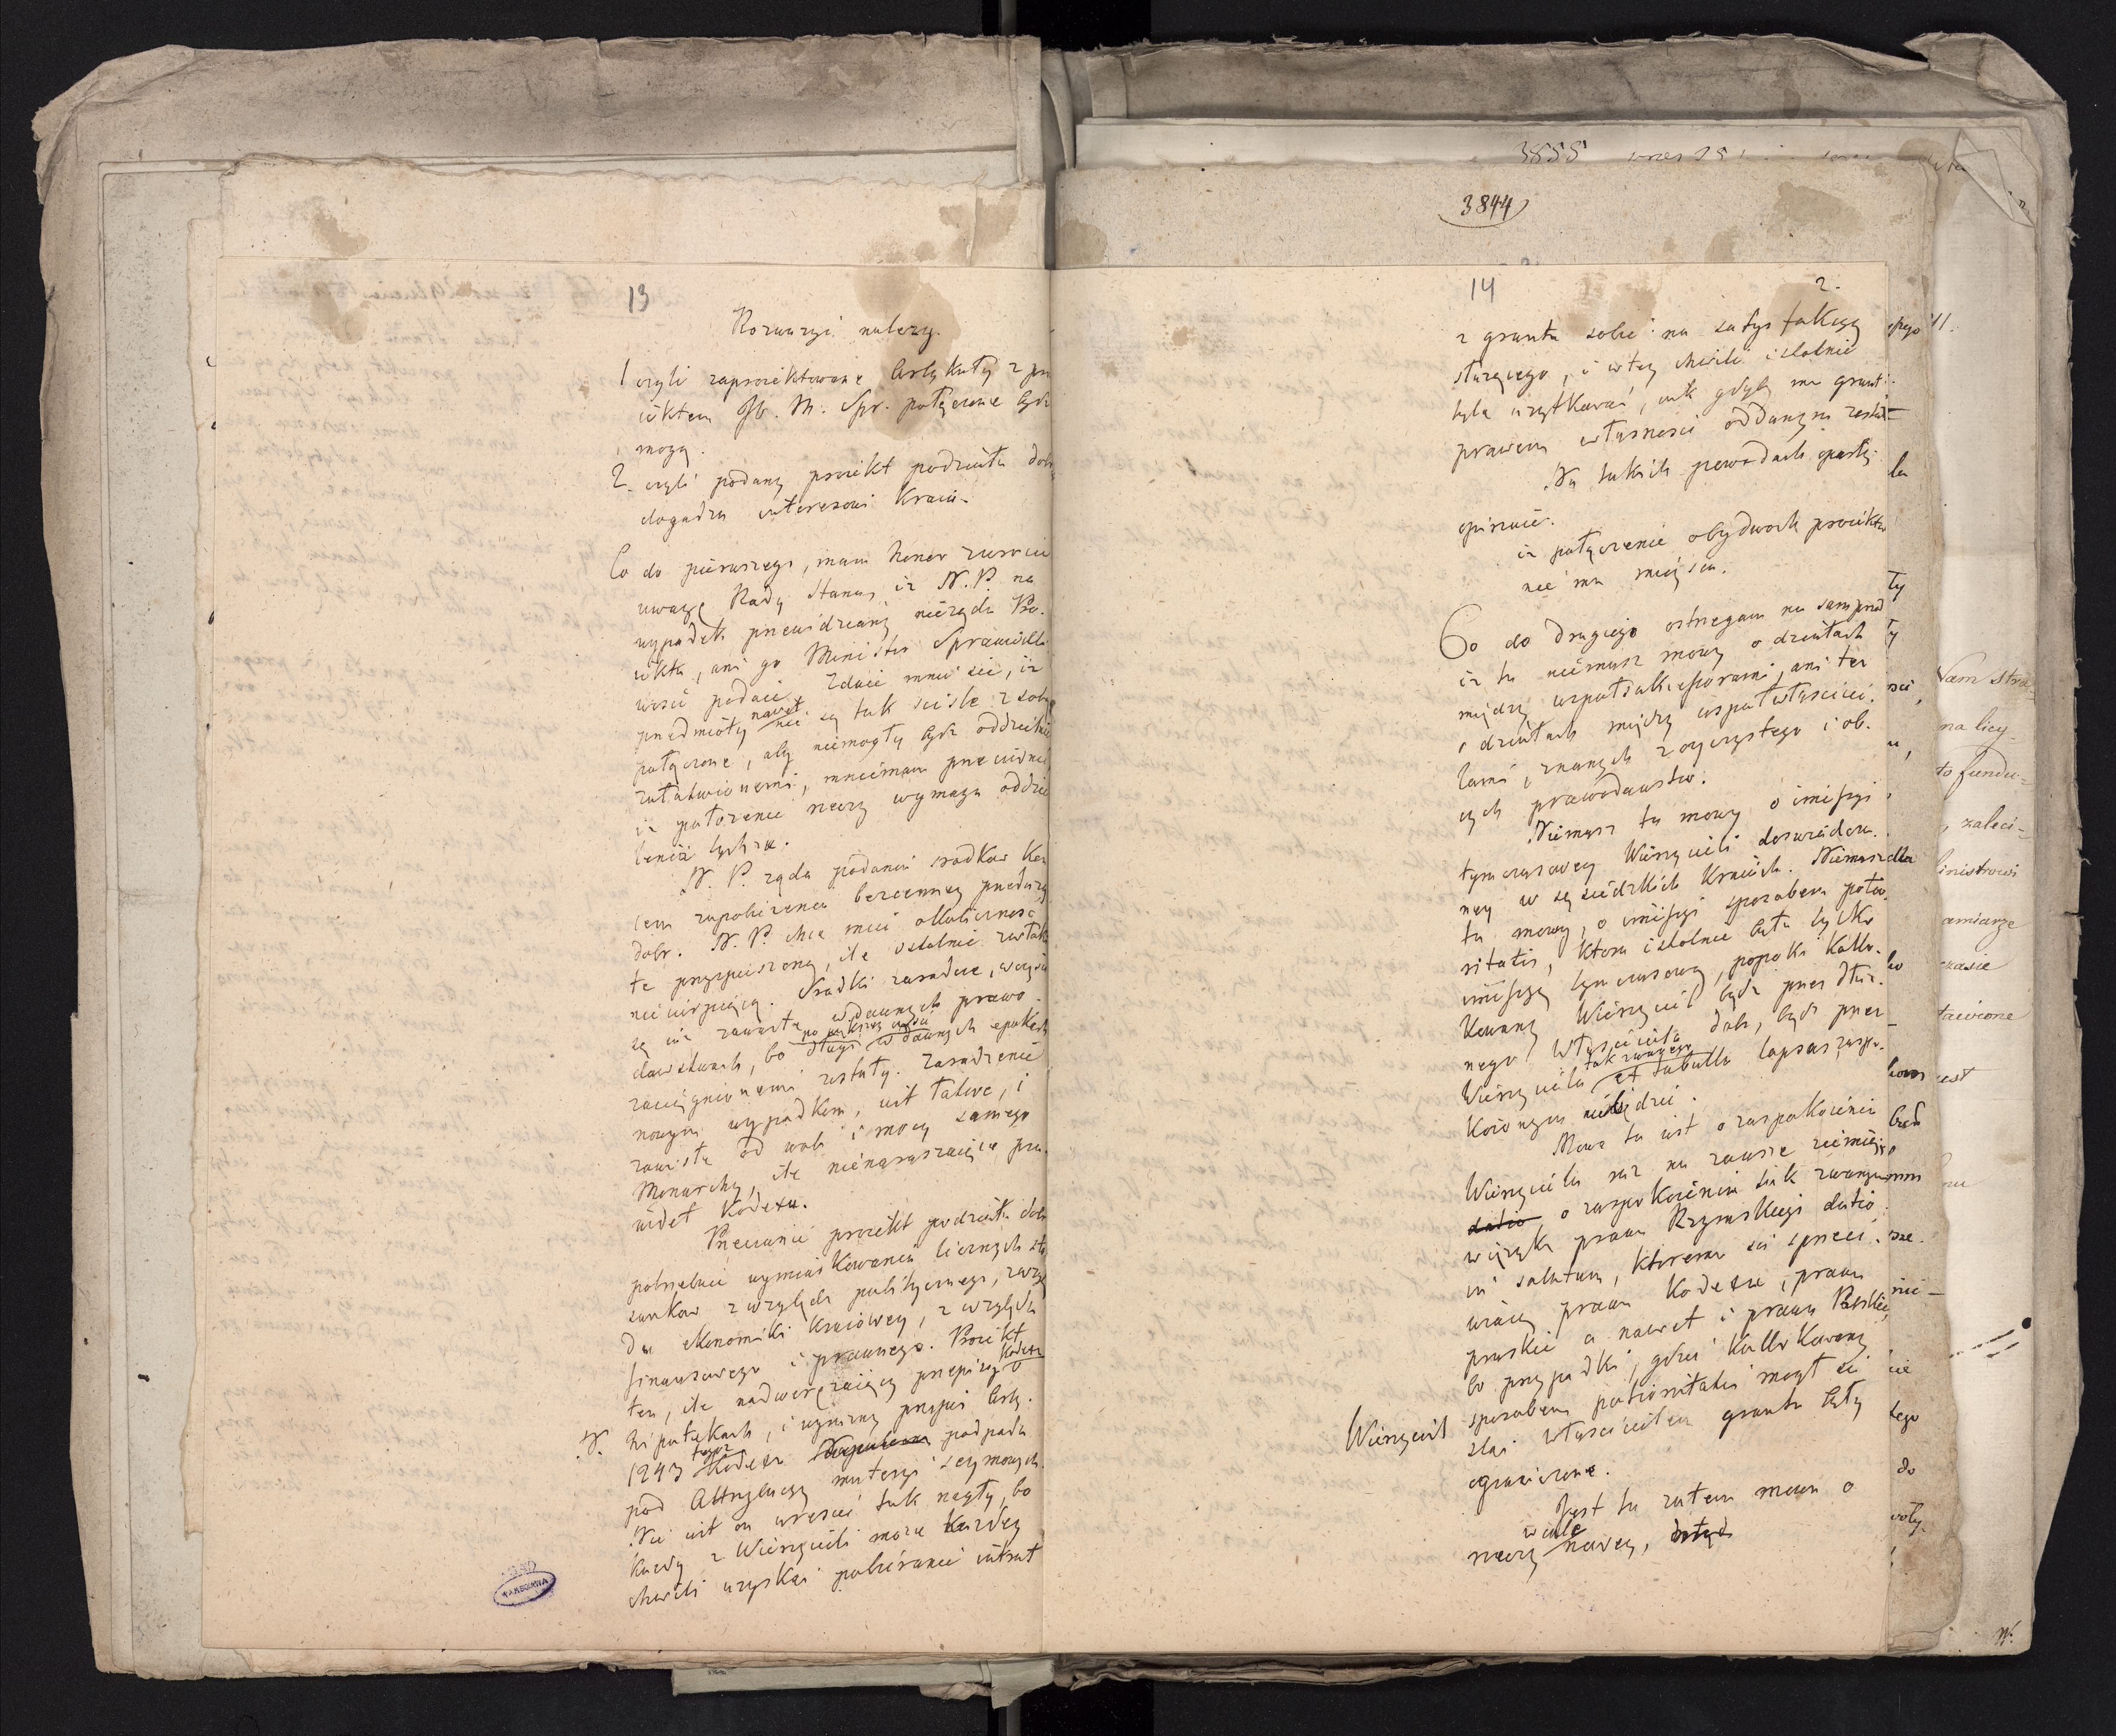 13
Rozważyć należy.
1 czyli zaproiektowane Artykuły z pro
iektem JW. M. Spr. połączone być
mogą.
2. czyli podany proiekt podziału dobr
dogadza interesowi Kraiu.
Co do pierwszego, mam honor zwrócić
uwagę Rady Stanu, iż N. P. na
wypadek przewidziany nieżąda Pro-
iektu, ani go Minister Sprawiedli
wości podaie. Zdaie mnie się, iż
przedmioty nawet nie są tak ściśle z sobą
połączone, aby niemogły być oddzielnie
załatwionemi, mniemam przeciwnie
iż położenie rzeczy wymaga oddzie
lenia tychże.
N. P. żąda podania srodkow ke
cem zapobieżenia bezcenney przedaży
dobr. N. P. chce mieć okoliczność
tę przyspieszoną, ile istotnie zwłoki
niecierpiącą. Srodki zaradcze, w części
są iuż zawarte w dawnych prawo-
dawstwach, bo długi po większey części w dawnych epokach
zaciągnionemi zostały. Zaradzenie
nowym wypadkom, iest łatwe, i
zawisłe od woli i mocy samego
Monarchy, ile nienaruszaiące pra-
wideł Kodexu.
Przeciwnie proiekt podziału dobr
potrzebuie wymiarkowania licznych sto
sunkow z względu politycznego, wzglę
du ekonomiki kraiowey, z względu
finansowego i prawnego. Proiekt
ten, ile nadwerężaiący przepisy Kodexu o
hipotekach, i wyraźny przepis Arty.
N. 1243 tegoż Kodexu Napoleona podpada
pod Attrybucyą materyi seymowych.
Nie iest on wreście tak nagły, bo
każdy z Wierzycieli może każdey
chwili uzyskać pobieranie intrat
3844
14
2.
z gruntu sobie na satysfakcyą
służącego, i w tey chwili istotnie
tyle użytkować, iak gdyby mu grunt
prawem własności oddanym został
Na takich powodach oparty
opiniuię.
iż połączenie obydwoch proiektow
nie ma mieysca.
Co do Drugiego ostrzegam na sam przod
iż tu niemasz mowy o działach
między wspołsukcessorami, ani też
o działach między wspołwłaścicie-
lami, znanych z oyczystego i ob-
cych prawodawstw.
Niemasz tu mowy o immissyi
tymczasowey Wierzycieli doswiadczo-
ney w sąsiedzkich Kraiach. Niemasz
tu mowy, o immissyi sposobem potio-
ritatis, ktora istotnie była tylko
immissyą tymczasową, popoki kollo-
kowany Wierzyciel bądź przez dłuż-
nego Właściciela dobr, bądź przez
Wierzyciela tak zwanego ex tabulla lapsus, zaspo-
koionym niebędzie.
Mowa tu iest o zaspokoieniu
Wierzyciela raz na zawsze ziemią,
datio o zaspokoienie tak zwanym
w ięzyku prawa Rzymskiego datio
in solutum, ktoremu się sprzeci-
wiaią prawa Kodexu, prawa
pruskie a nawet i prawa Polskie,
bo przypadki, gdzie kollokowany
Wierzyciel sposobem potioritatis mogł się
stać właścicielem gruntu były
ograniczone.
Jest tu zatem mowa o
rzeczy wcale nowey,